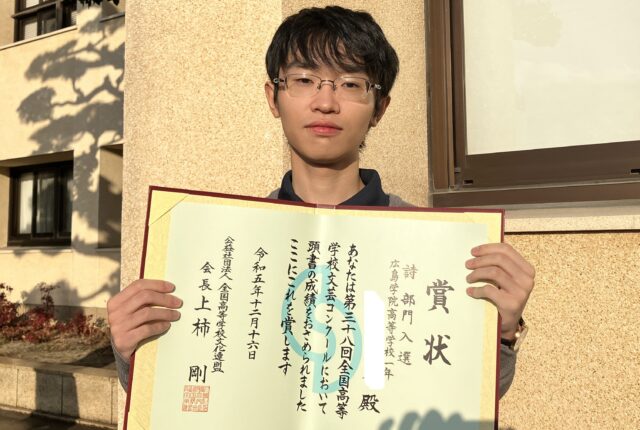 賞状
詩部門入選
広島学院高等学校一年
殿
あなたは第三十八回全国高等
学校文芸コンクールにおいて
頭書の成績をおさめられました
ここにこれを賞します
令和五年十二月十六日
公益社団法人全国高等学校文化連盟
会長上柿剛